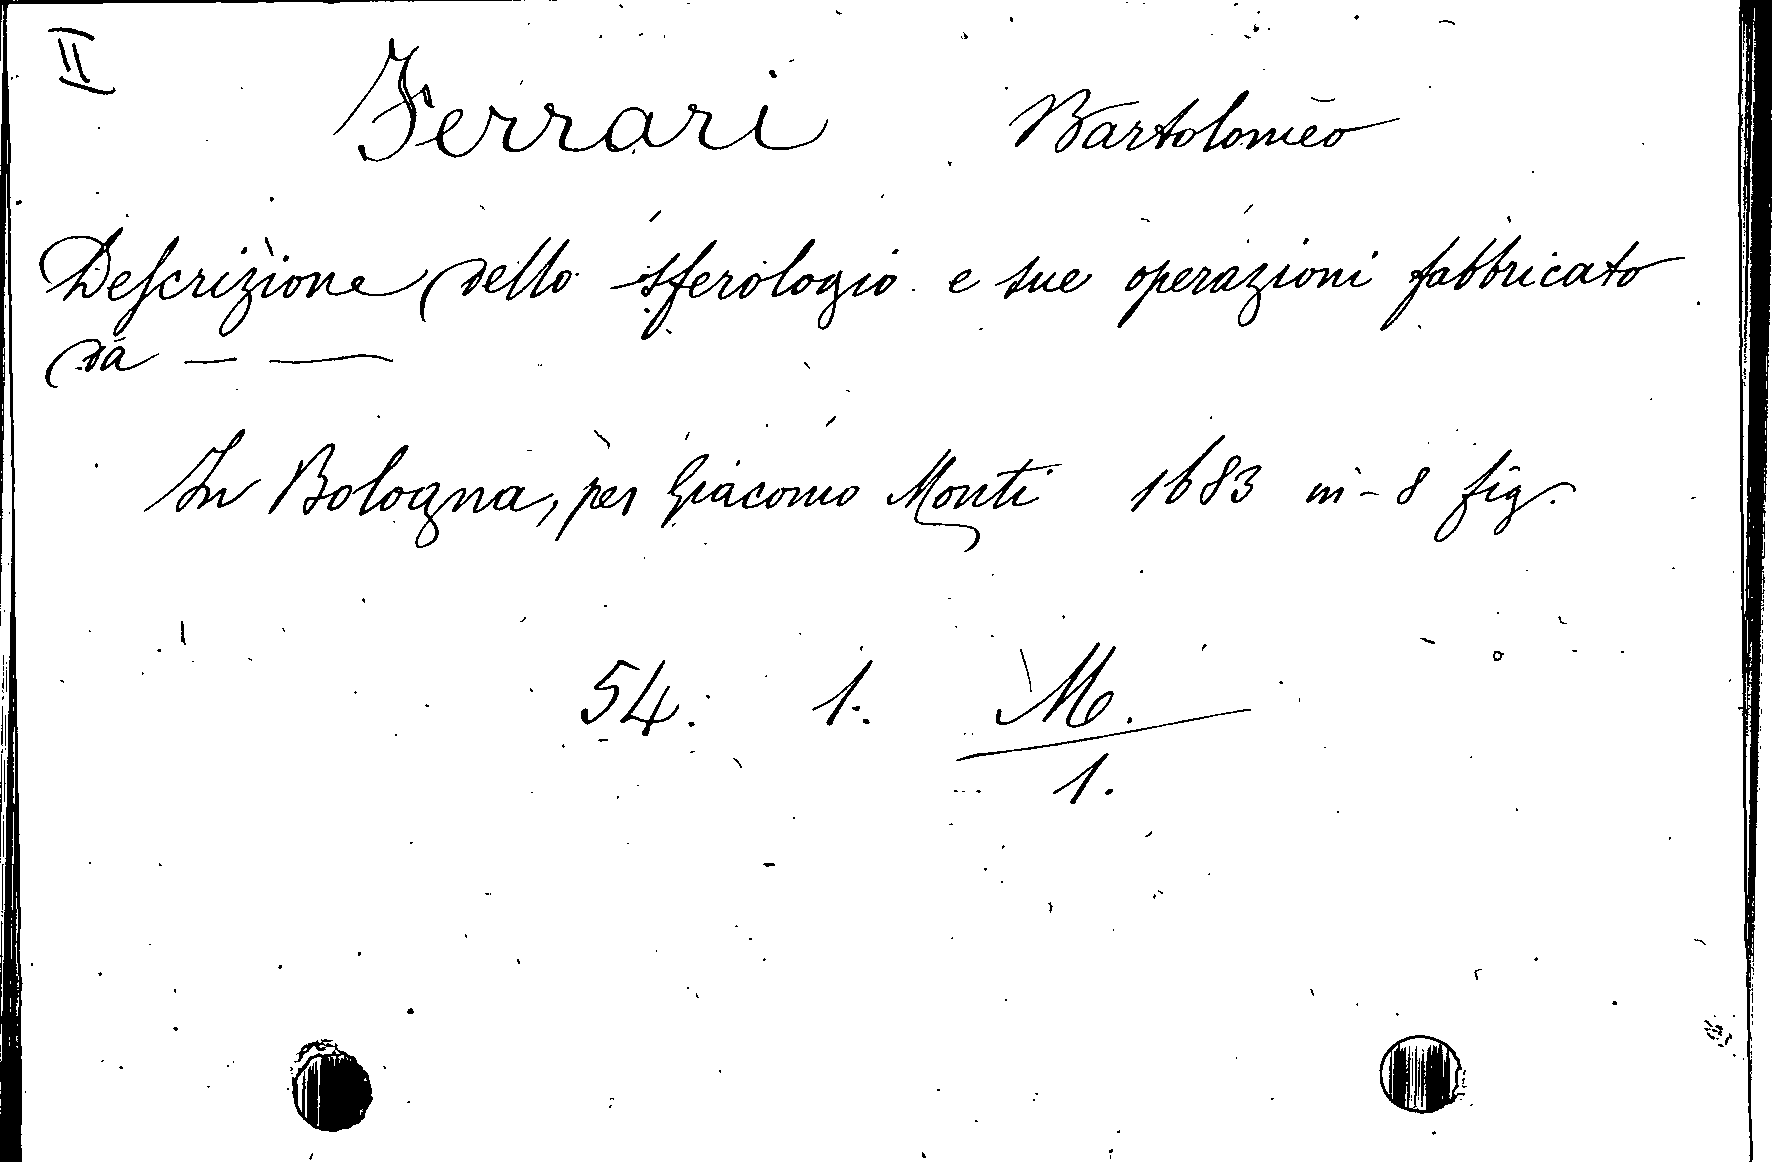 II
Ferrari Bartolomeo
Descrizione dello sferologio e sue operazioni fabbricato
da — —
In Bologna, per Giacomo Monti 1683 in-8 fig.
54. 1. M.
1.